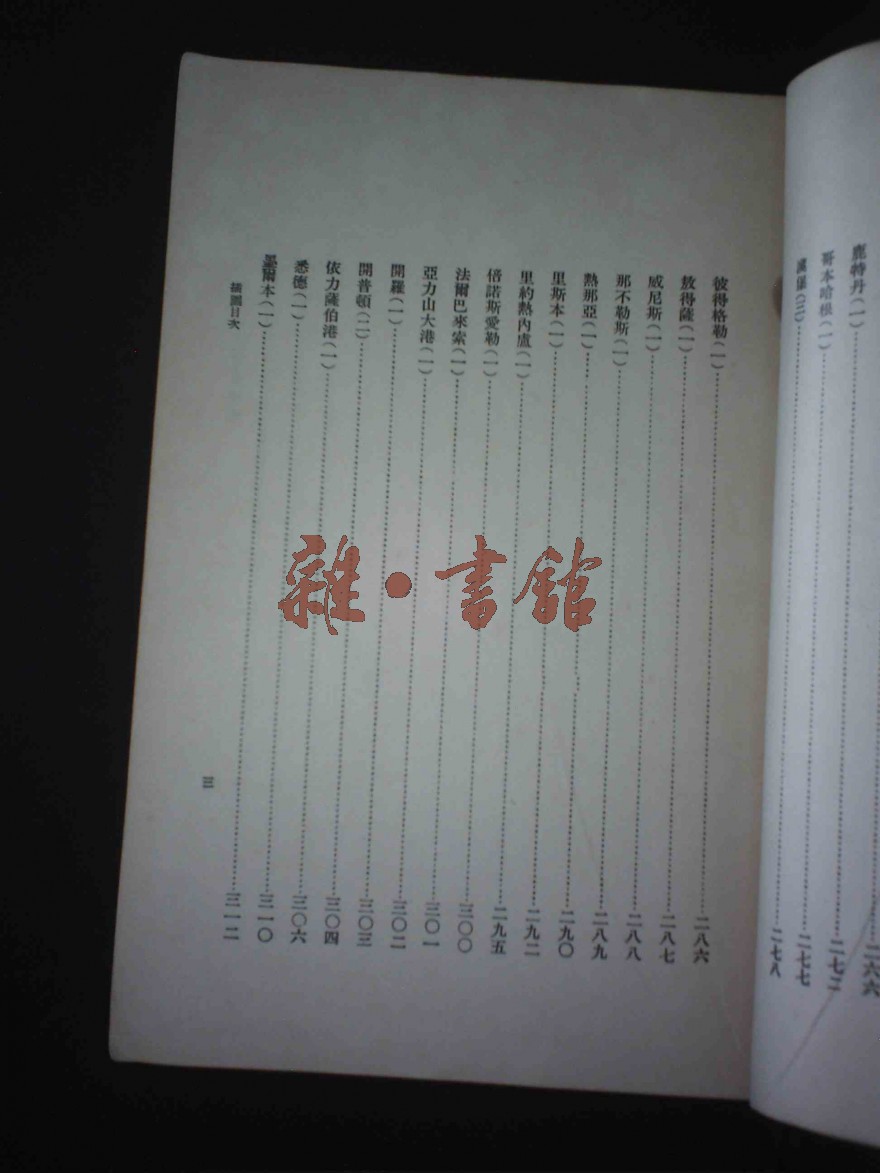 二六六
鹿特丹(一)……二七二
哥本哈根(一)……二七七
漢堡(三)……二七八
彼得格勒(一)……二八六
敖得薩(一)……二八七
威尼斯(一)……二八八
那不勒斯(一)……二八九
熱那亞(一)……二九〇
里斯本(一)……二九二
里約熱內盧(一)……二九五
倍諾斯愛勒(一)……三〇〇
法爾巴來索(一)……三〇一
亞力山大港(一)……三〇二
開羅(一)……三〇三
開普頓(二)……三〇四
依力薩伯港(一)……三〇六
悉德(一)……三一〇
墨爾本(一)……三一二
插圖目次
三
雜·書館